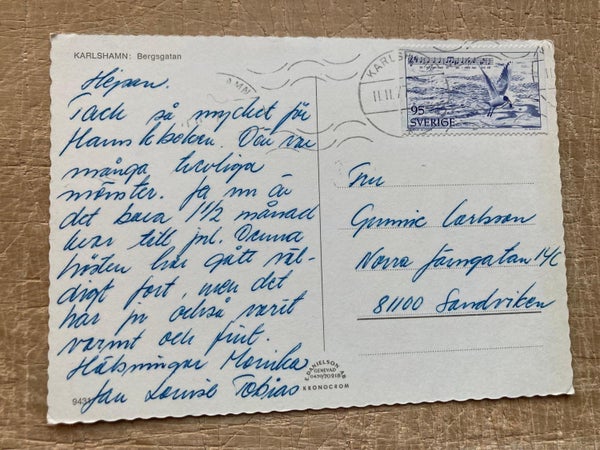 KARLSHAMN: Bergsgatan
Hejsan.
Tack så mycket för
Hannikboken. Där var
många trevliga
mönster. Ja nu är
det bara 1 1/2 månad
kvar till jul. Denna
hösten har gått väl-
digt fort, men det
har ju också varit
varmt och fint.
Hälsningar Monika
Jan Louise Tobias
KARLSH
11.11.7
95
SVERIGE
Fru
Gunnie Carlsson
Norra Järngatan 14C
81100 Sandviken
DANIELSON
GENEVAD
KRONOCROM